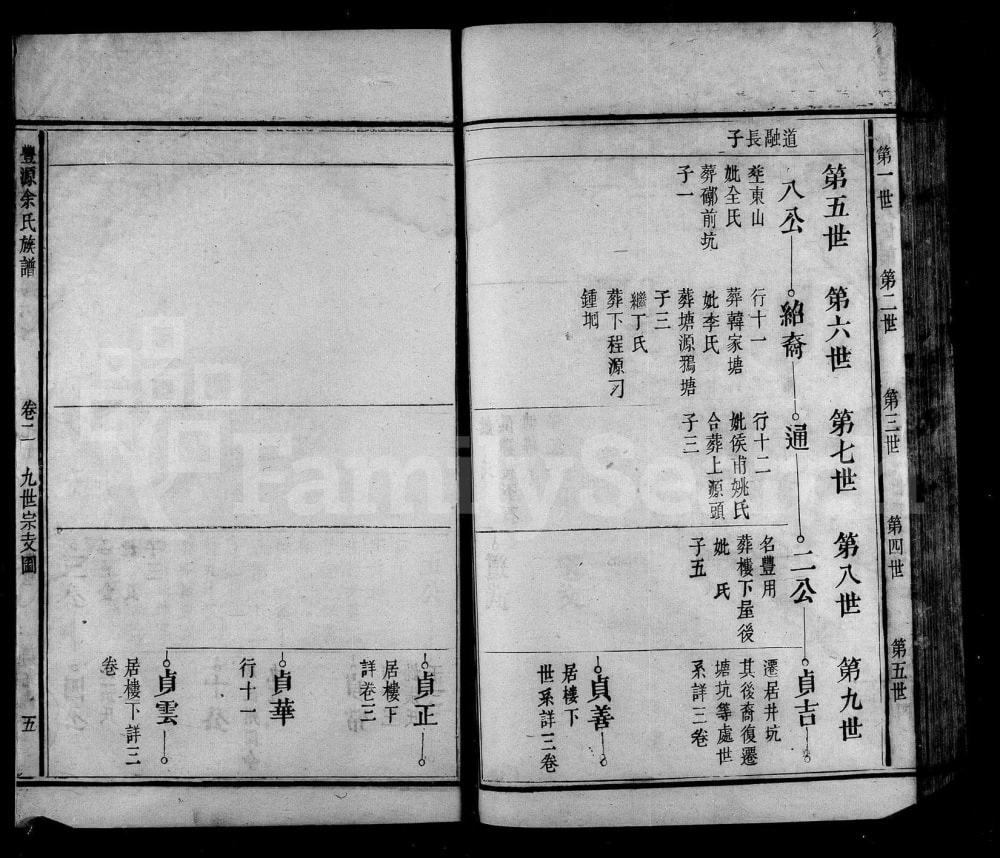 第一世
第二世
第三世
第四世
第五世
道融長子
第五世
第六世
第七世
第八世
第九世
八公
塟東山
妣全氏
葬鄗前坑
子一
紹裔
行十一
葬韓家塘
妣李氏
葬塘源鴉塘
子三
繼丁氏
葬下程源刁
鍾垇
通
行十二
妣侯甫姚氏
合葬上源頭
子三
二公
名豐用
葬樓下屋後
妣 氏
子五
貞吉
遷居井坑
其後裔復遷
塘坑等處世
系詳三卷
貞善
居樓下
世系詳三卷
貞正
居樓下
詳卷三
貞華
行十一
貞雲
居樓下詳三
卷
豐源余氏族譜
卷二
九世宗支圖
五
FamilySearch